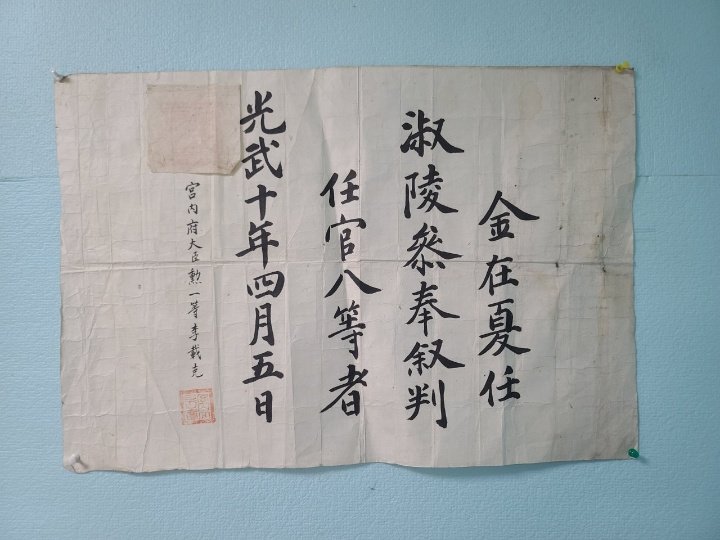 金在夏任
淑陵叅奉叙判
任官八等者
光武十年四月五日
宮內府大臣勲一等李載克